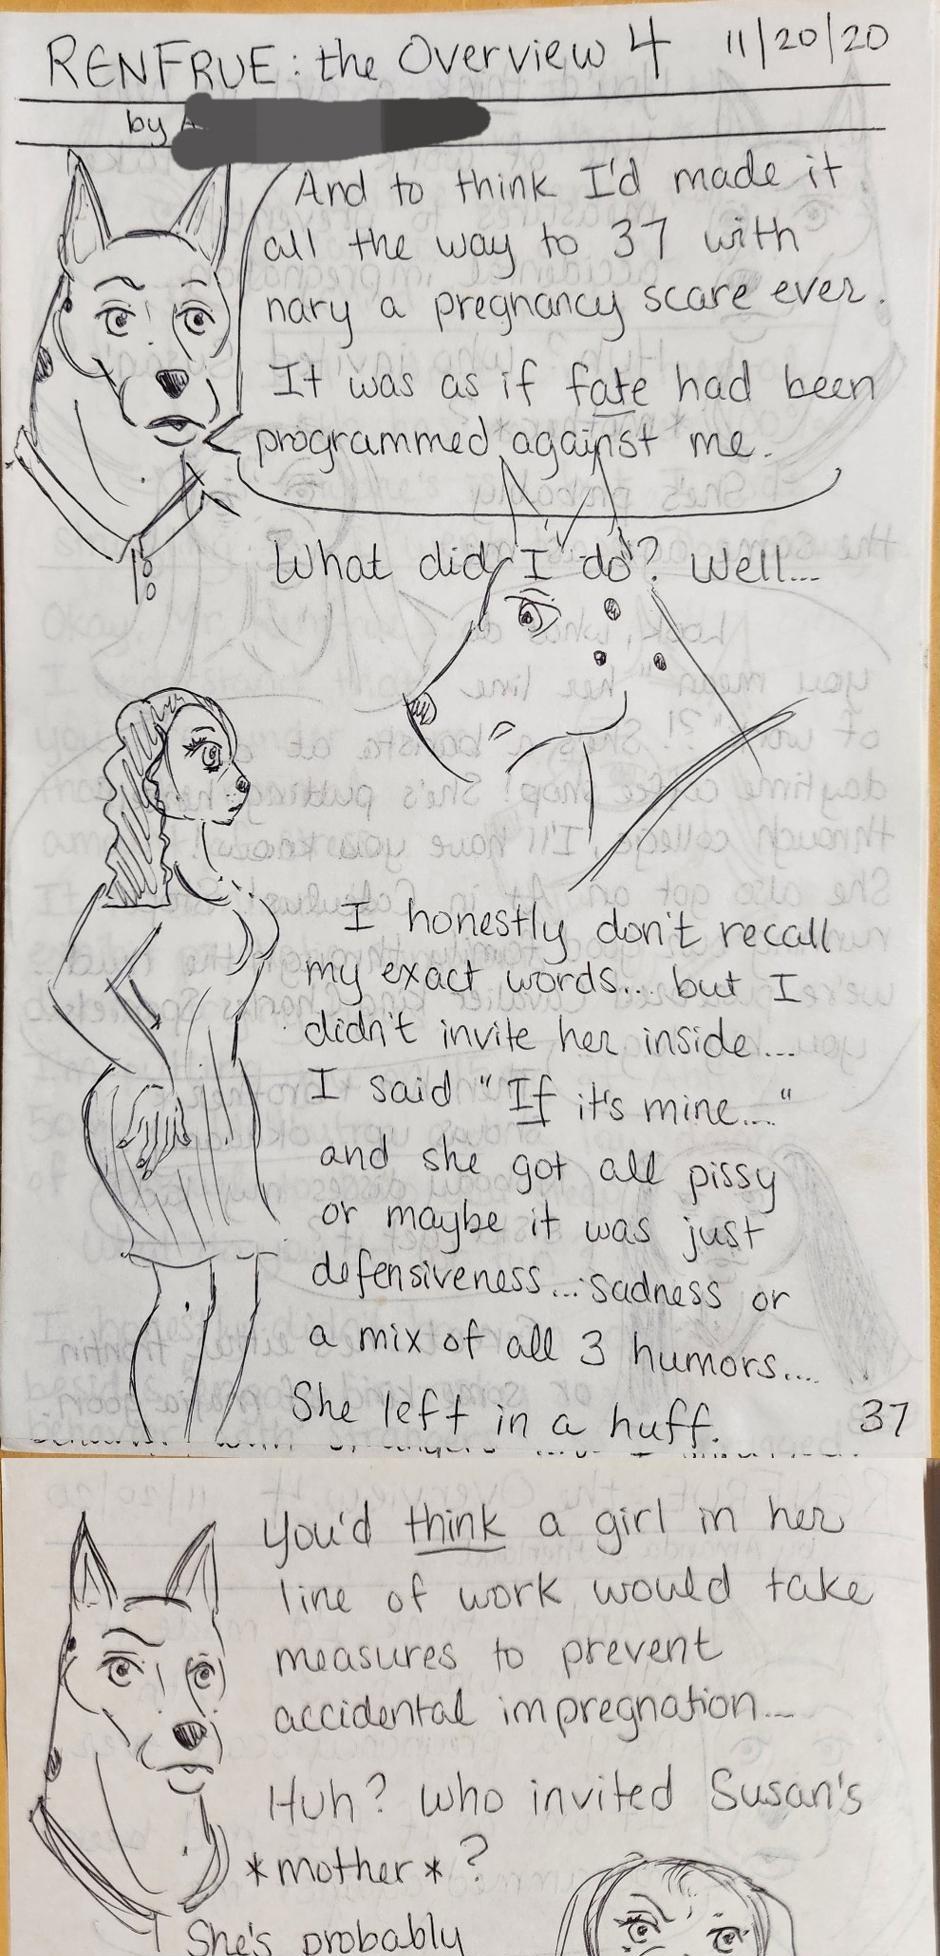 RENFRUE: the Overview 4 11/20/20
by
And to think I'd made it
all the way to 37 with
nary a pregnancy scare ever.
It was as if fate had been
programmed against me.
What did I do? Well...
I honestly don't recall
my exact words... but I
didn't invite her inside...
I said "If it's mine..."
and she got all pissy
or maybe it was just
defensiveness... sadness or
a mix of all 3 humors....
She left in a huff.
37
You'd think a girl in her
line of work would take
measures to prevent
accidental impregnation...
Huh? Who invited Susan's
*mother*?
She's probably